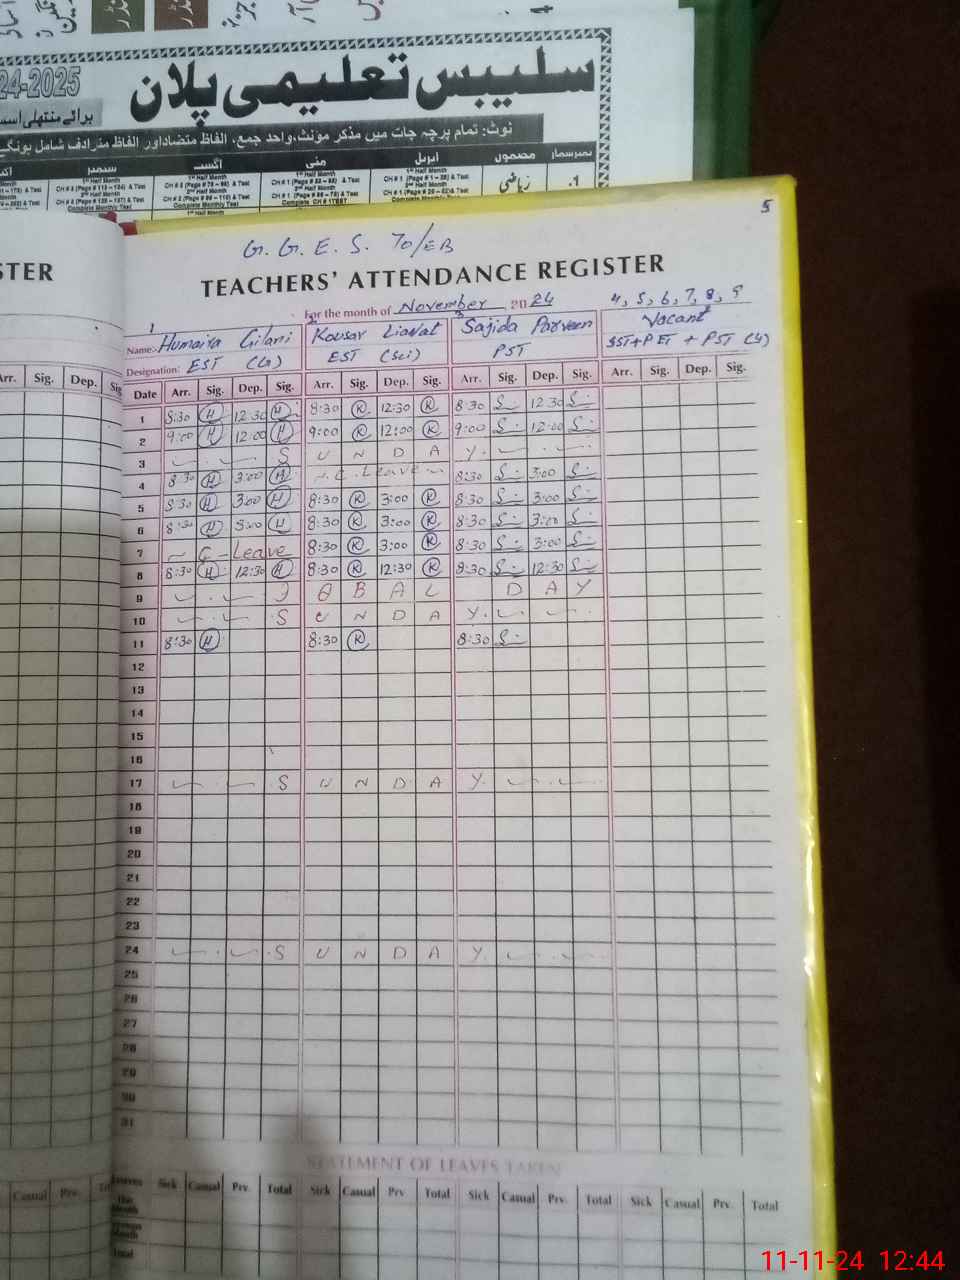 24-2025
سلیبس تعلیمی پلان
نوٹ: تمام پرچہ جات میں مذکر مونث، واحد جمع، الفاظ متضاد اور الفاظ مترادف شامل ہونگے
نمبر شمار مضمون اپریل مئی اگست ستمبر
1. ریاضی
5
G. G. E. S. 70/EB
STER
TEACHERS' ATTENDANCE REGISTER
For the month of November 2024
4, 5, 6, 7, 8, 9
1 2 3 Vacant
Name:- Humaira Gilani Kousar Liaqat Sajida Parveen
Designation: EST (G) EST (Sci) PST SST+PET + PST (4)
Arr. Sig. Dep. Sig
Date Arr. Sig. Dep. Sig. Arr. Sig. Dep. Sig. Arr. Sig. Dep. Sig. Arr. Sig. Dep. Sig.
1 8:30 H 12:30 H 8:30 K 12:30 K 8:30 S 12:30 S
2 9:00 H 12:00 H 9:00 K 12:00 K 9:00 S 12:00 S
3 S U N D A Y
4 8:30 H 3:00 H C. Leave 8:30 S 3:00 S
5 8:30 H 3:00 H 8:30 K 3:00 K 8:30 S 3:00 S
6 8:30 H 3:00 H 8:30 K 3:00 K 8:30 S 3:00 S
7 C - Leave 8:30 K 3:00 K 8:30 S 3:00 S
8 8:30 H 12:30 H 8:30 K 12:30 K 8:30 S 12:30 S
9 I Q B A L D A Y
10 S U N D A Y
11 8:30 H 8:30 K 8:30 S
12
13
14
15
16
17 S U N D A Y
18
19
20
21
22
23
24 S U N D A Y
25
26
27
28
29
30
31
STATEMENT OF LEAVES TAKEN
Casual Prv. Leaves Sick Casual Prv. Total Sick Casual Prv Total Sick Casual Prv. Total Sick Casual Prv. Total
This Month
Previous Month
Total
11-11-24 12:44